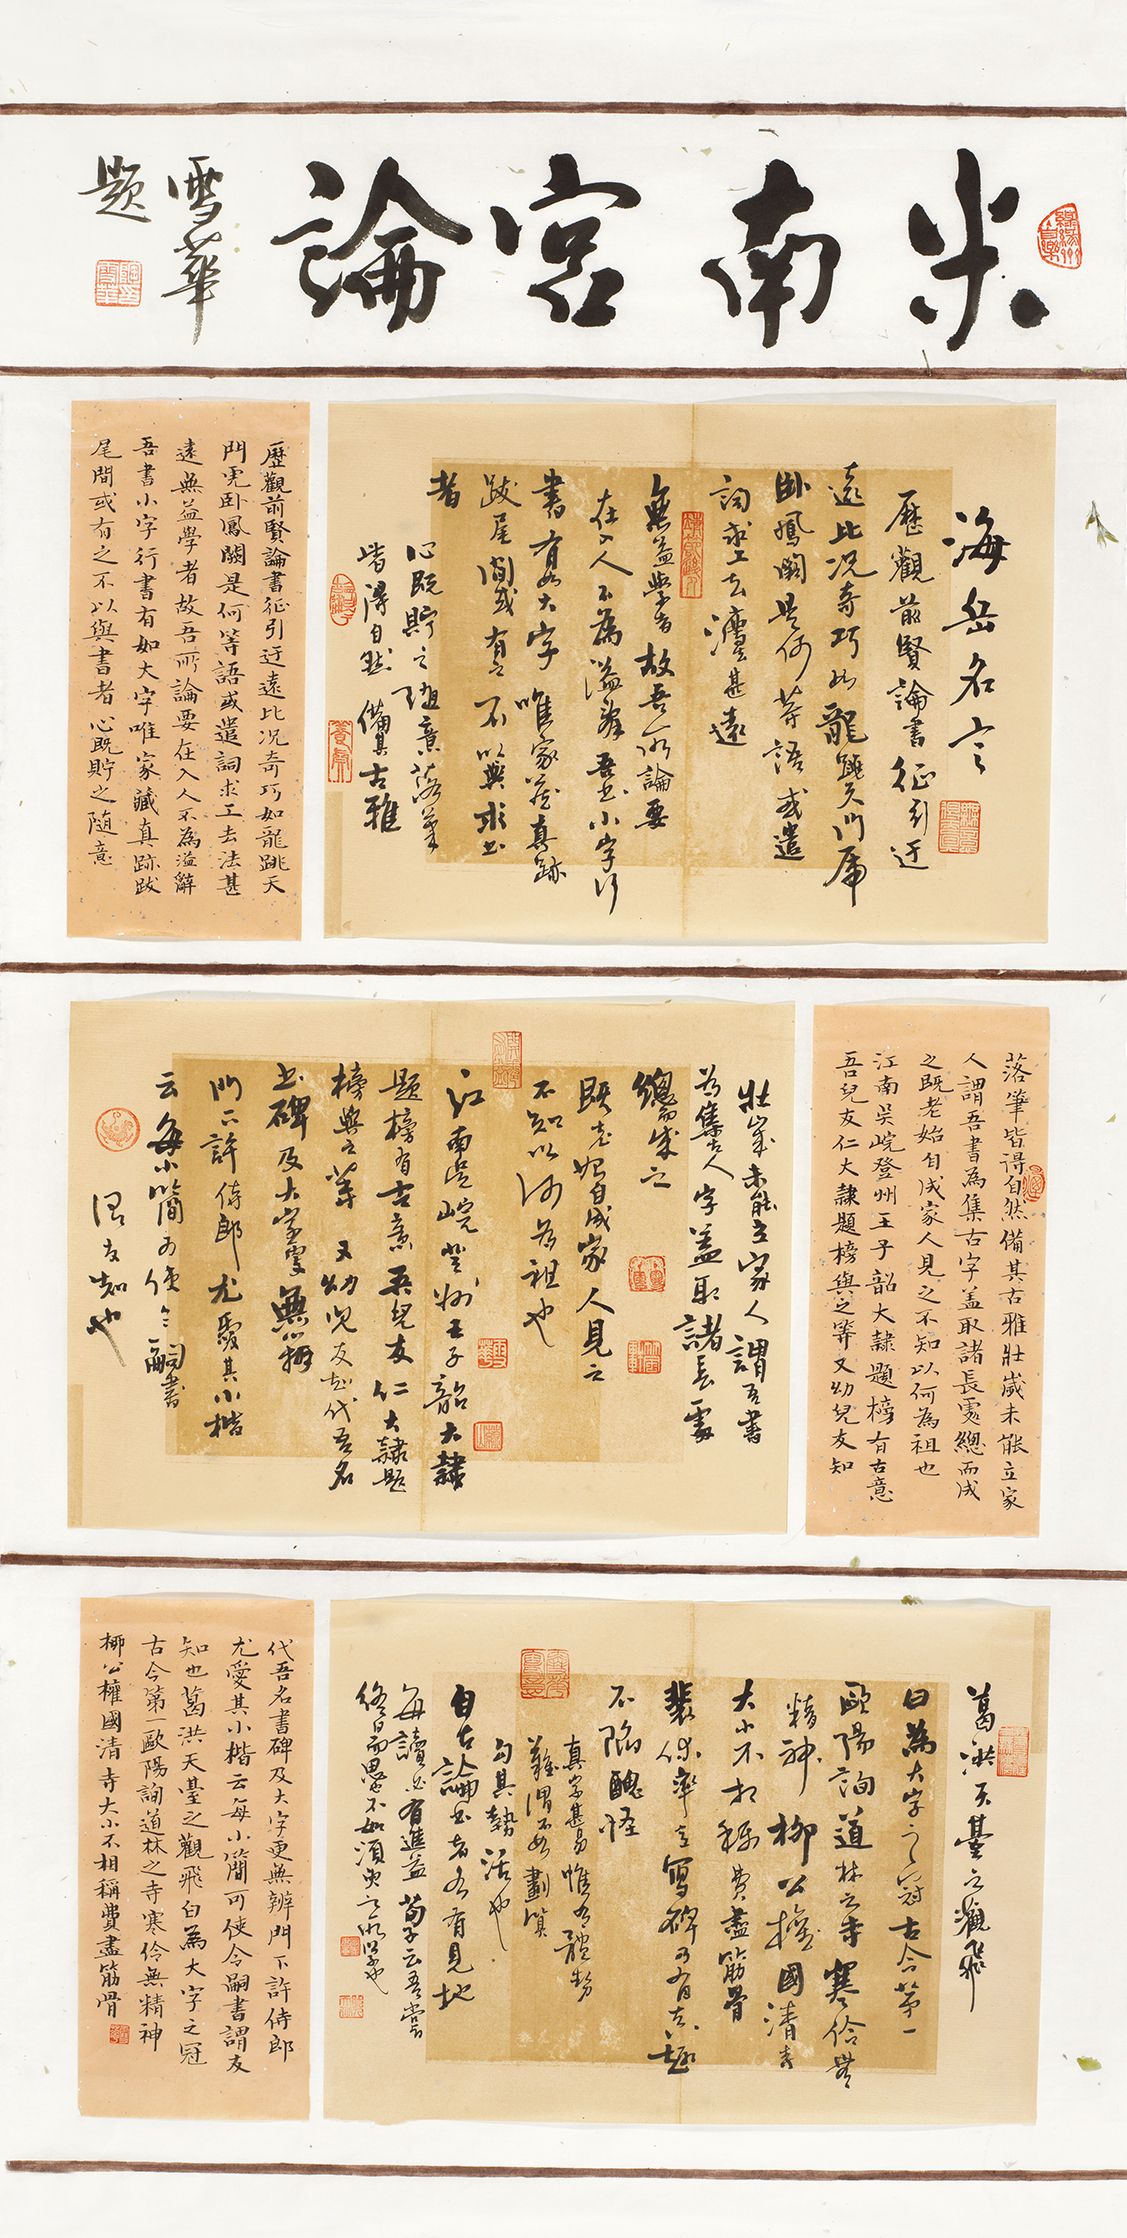 米南宮論
雪華
題
海岳名言
歷觀前賢論書征引迂
遠比況奇巧如龍跳天門虎
卧鳳闕是何等語或遣
詞求工去灋甚遠
無益學者故吾所論要
在入人不為溢辭吾書小字行
書有如大字唯家藏真跡
跋尾間或有之不以與求書
者
心既貯之隨意落筆
皆得自然備其古雅
歷觀前賢論書征引迂遠比况奇巧如龍跳天
門虎卧鳳闕是何等語或遣詞求工去法甚
遠無益學者故吾所論要在入人不為溢辭
吾書小字行書有如大字唯家藏真跡跋
尾間或有之不以與書者心既貯之隨意
落筆皆得自然備其古雅壯歲未能立家
人謂吾書為集古字蓋取諸長處總而成
之既老始自成家人見之不知以何為祖也
江南吴皖登州王子韶大隸題榜有古意
吾兒友仁大隸題榜與之等又幼兒友知
壯歲未能立家人謂吾書
為集古人字蓋取諸長處
總而成之
既老始自成家人見之
不知以何為祖也
江南吴皖登州王子韶大隸
題榜有古意吾兒友仁大隸題
榜與之等又幼兒友知代吾名
書碑及大字更無辨
門下許侍郎尤愛其小楷
云每小簡可使令嗣書
謂友知也
葛洪天臺之觀飛
白為大字之冠古今第一
歐陽詢道林之寺寒伶無
精神柳公權國清寺
大小不相稱費盡筋骨
裴休率意寫碑乃有真趣
不陷醜怪
真字甚易惟有體勢
難謂不如畫算
勻其勢活也
自古論書者各有見地
每讀必有進益荀子云吾嘗
終日而思不如須臾之所學也
代吾名書碑及大字更無辨門下許侍郎
尤愛其小楷云每小簡可使令嗣書謂友
知也葛洪天臺之觀飛白為大字之冠
古今第一歐陽詢道林之寺寒伶無精神
柳公權國清寺大小不相稱費盡筋骨